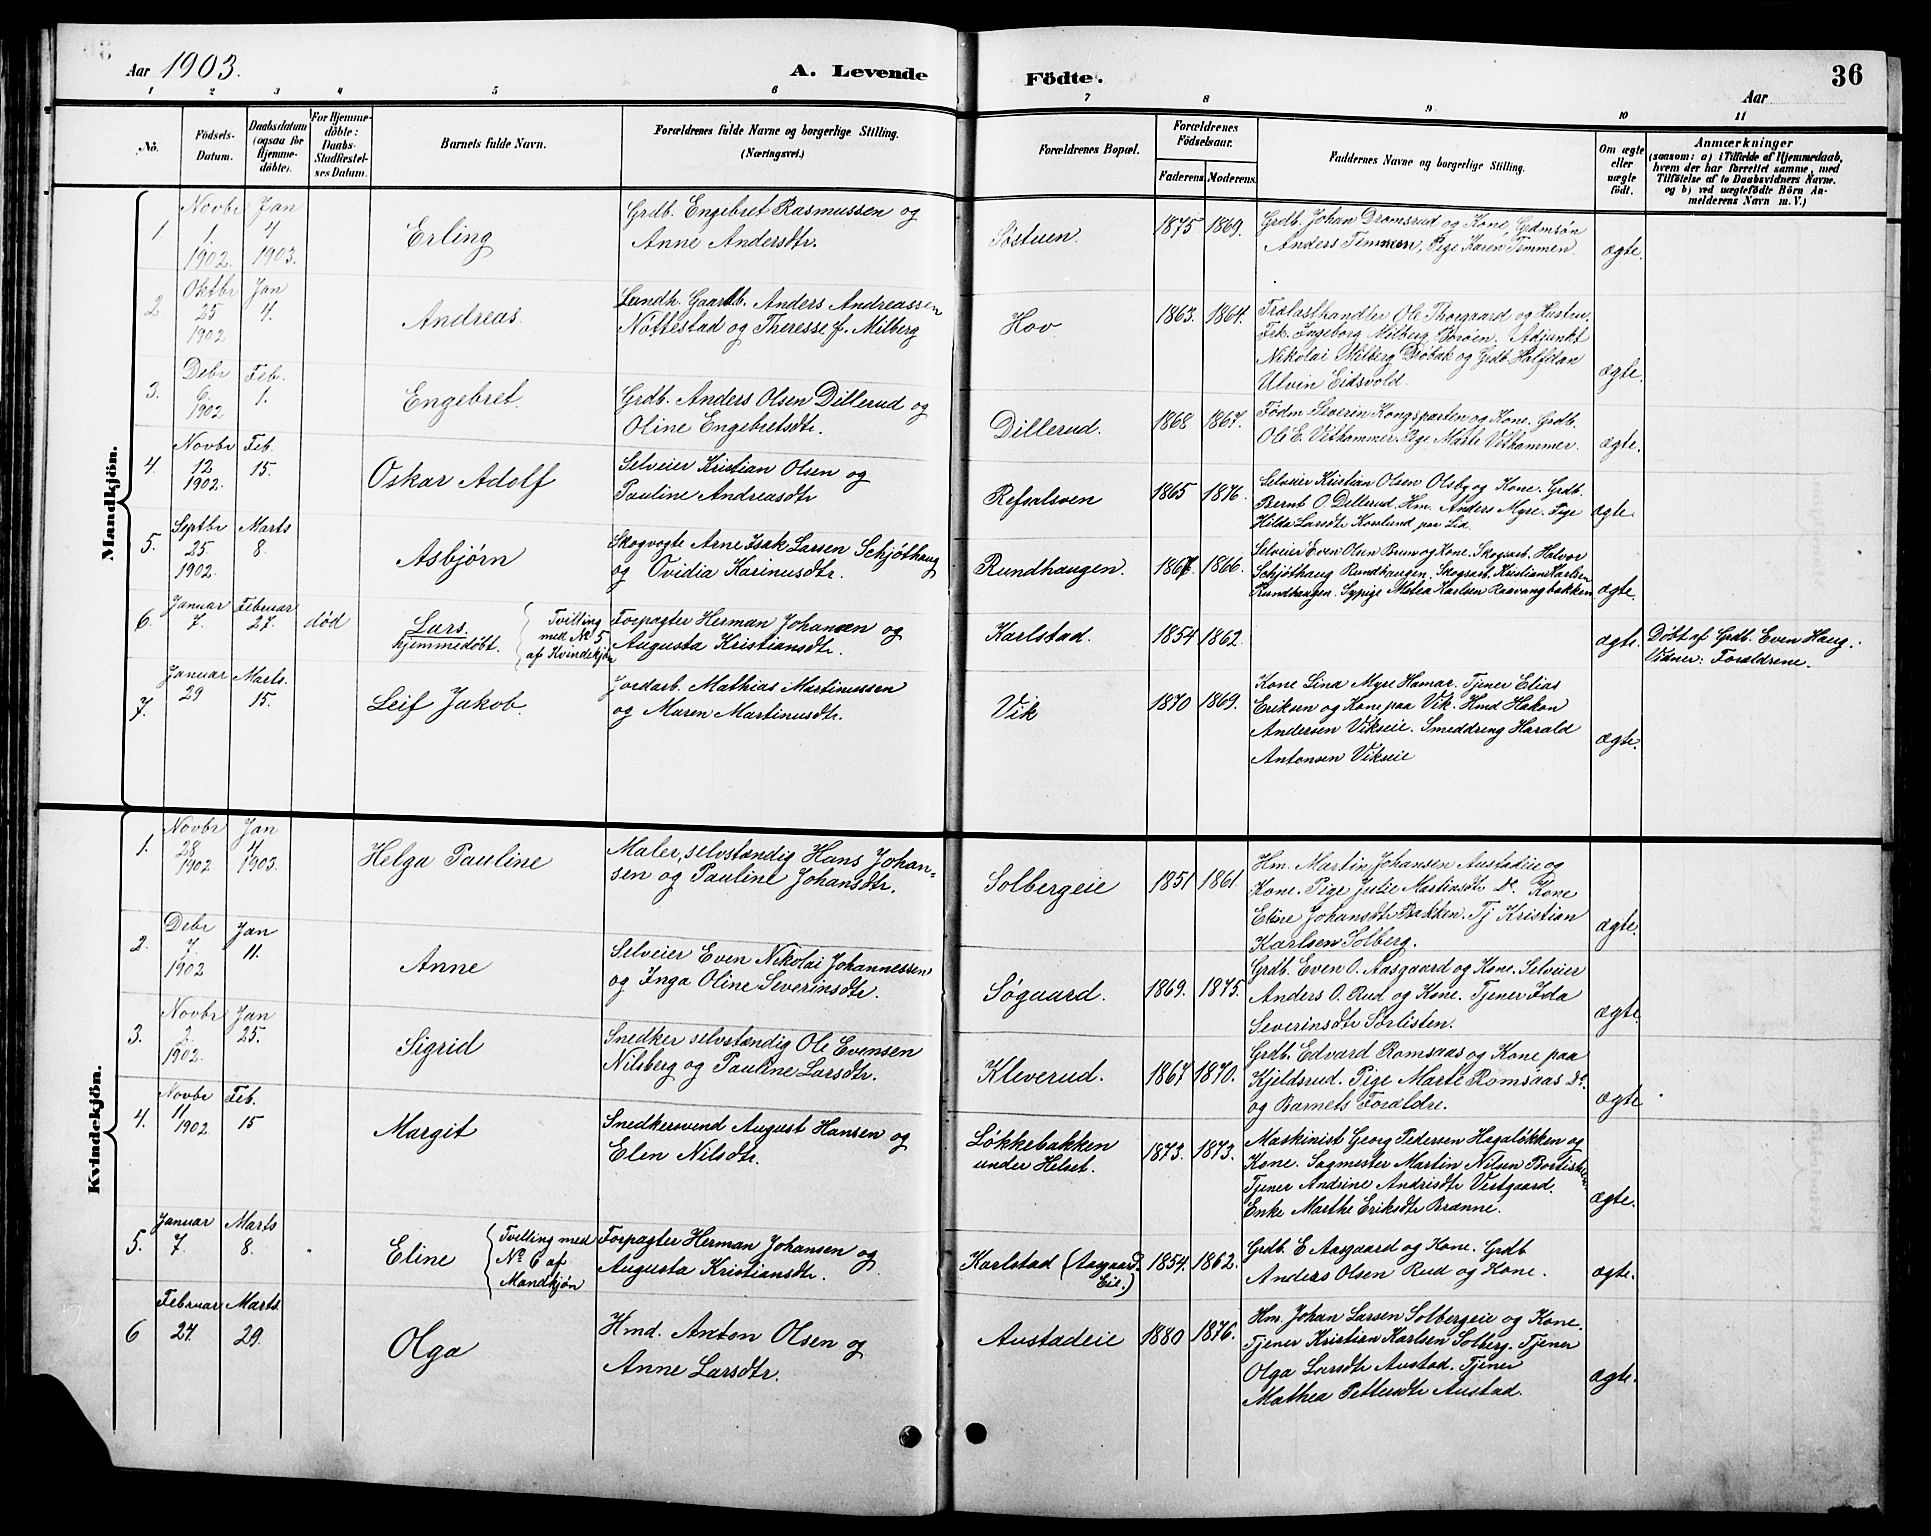 Aar 1903.
A. Levende
Födte.
Aar
36
1 2 3 4 5 6 7 8 9 10 11
No.
Födsels-Datum.
Daabsdatum (ogsaa for Hjemmedöbte).
For Hjemmedöbte: Daabs-Stadfæstelses Datum.
Barnets fulde Navn.
Forældrenes fulde Navne og borgerlige Stilling.
(Næringsvei.)
Forældrenes Bopæl.
Forældrenes Födselsaar.
Faderens. Moderens.
Faddernes Navne og borgerlige Stilling.
Om ægte eller uægte födt.
Anmærkninger
(saasom: a) i Tilfælde af Hjemmedaab,
hvem der har forrettet samme, med
Tilföielse af to Daabsvidners Navne,
og b) ved uægtefödte Börn An-
melderens Navn m. V.)
Mandkjön.
1 Novbr 1 1902. Jan 4 1903. Erling
Grdb. Engebret Rasmussen og
Anne Andersdtr.
Søstuen. 1875 1869.
Grdb. Johan Dromsrud og Kone, Grdmsøn
Anders Temmen, Pige Karen Temmen.
ægte.
2 Oktbr 25 1902 Jan 4. Andreas.
Landh. Gaardb. Anders Andreassen
Nøttestad og Theresse f. Milberg
Hov 1863. 1864.
Trælasthandler Ole Thorgaard og Hustru.
Frk. Ingeborg Milberg Adjunkt
Nikolai Milberg Drøbak og Grdb. Halfdan
Ulvin Eidsvold.
ægte.
3. Debr 6 1902 Feb. 1. Engebret.
Grdb. Anders Olsen Dillerud og
Oline Engebretsdtr.
Dillerud. 1868 1867.
Fødm Severin Kongsparten og Kone. Grdb.
Ole E. Vethammer. Pige Marte Vethammer.
ægte.
4. Novbr 12 1902. Feb. 15. Oskar Adolf
Selveier Kristian Olsen og
Pauline Andreasdtr
Refsalsven 1865 1876.
Selveier Kristian Olsen Olsby og Kone. Grdb.
Bernt O. Dillerud. Hm. Anders Myre. Pige
Hilda Larsdtr Korslund paa Lid.
ægte.
5. Septbr 25 1902. Marts 8. Asbjørn
Skogvogte Arne Isak Larsen Schjøthaug
og Ovidia Karinusdtr.
Rundhaugen. 1867. 1866.
Selveier Even Olsen Brun og Kone. Skogsarb. Halvor
Schjøthaug Rundhaugen. Skogsarb. Kristian Karlsen
Rundhaugen. Sypige Matea Karlsen Raavangbakken
ægte.
6. Januar 7. Februar 27. død Lars.
hjemmedøbt.
Tvilling
med No 5
af Kvindekjøn
Forpagter Herman Johansen og
Augusta Kristiansdtr.
Karlstad. 1854 1862.
ægte. Døbt af Grdb. Even Haug.
Vidner: Forældrene.
7. Januar 29 Marts. 15. Leif Jakob.
Jordarb. Mathias Martinussen
og Maren Martinusdtr.
Vik 1870 1869.
Kone Lina Myre Hamar. Tjener Elias
Eriksen og Kone paa Vik. Hmd Hakon
Andersen Vikseie. Smeddreng Harald
Antonsen Vikseie
ægte.
Kvindekjön.
1. Novbr 28 1902 Jan 4 1903. Helga Pauline
Maler, selvstændig Hans Johan-
sen og Pauline Johansdtr.
Solbergeie 1851 1861.
Hm. Martin Johansen Austadeie og
Kone. Pige Julie Martinsdtr Do. Kone
Eline Johansdtr Bakken. Tj Kristian
Karlsen Solberg.
ægte.
2. Debr 7 1902 Jan 11. Anne
Selveier Even Nikolai Johannessen
og Inga Oline Severinsdtr.
Søgaard. 1869. 1875.
Grdb. Even O. Aasgaard og Kone. Selveier
Anders O. Rud og Kone. Tjener Ida
Severinsdtr Sørlisten.
ægte.
3. Novbr 2. 1902. Jan 25. Sigrid
Snedker selvstændig Ole Evensen
Nilsberg og Pauline Larsdtr.
Kleverud. 1867 1870.
Grdb. Edvard Romsaas og Kone paa
Kjeldsrud. Pige Marte Romsaas Do.
og Barnets Forældre.
ægte
4. Novbr 11 1902 Feb. 15 Margit
Snedkersvend August Hansen og
Elen Nilsdtr.
Løkkebakken
under Helset. 1873. 1873.
Maskinist Georg Pedersen Hagaløkken og
Kone. Sagmester Martin Nilsen
Tjener Andrine Andrisdtr Vestgaard.
Enke Marthe Eriksdtr Brænne.
ægte.
5. Januar 7. Marts 8. Eline
Tvilling med
No 6 af
Mandkjøn
Forpagter Herman Johansen og
Augusta Kristiansdtr.
Karlstad (Aasgaard
Eie.) 1854. 1862.
Grdb. E Aasgaard og Kone. Grdb
Anders Olsen Rud og Kone.
ægte.
6 Februar 24. Marts 29. Olga
Hmd. Anton Olsen og
Anne Larsdtr.
Austadeie 1880 1876.
Hm. Johan Larsen Solbergeie og Kone.
Tjener Kristian Karlsen Solberg. Tjener
Olga Larsdtr Austad. Tjener
Mathea Pettersdtr Austad.
ægte.